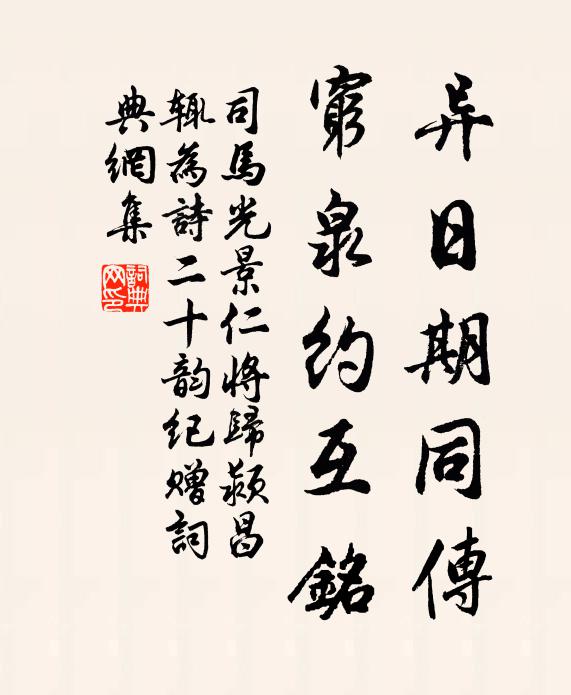 异日期同傳
窮泉約互銘
司馬光景仁將歸颍昌
輒為詩二十韵纪赠詞
典網集
詞典
网印